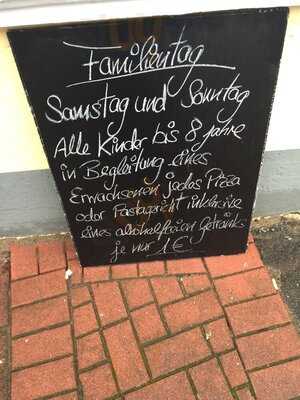 Familientag
Samstag und Sonntag
Alle Kinder bis 8 Jahre
in Begleitung eines
Erwachsenen jedes Pizza
oder Pastagericht inklusive
eines alkoholfreien Getränks
je nur 1 €